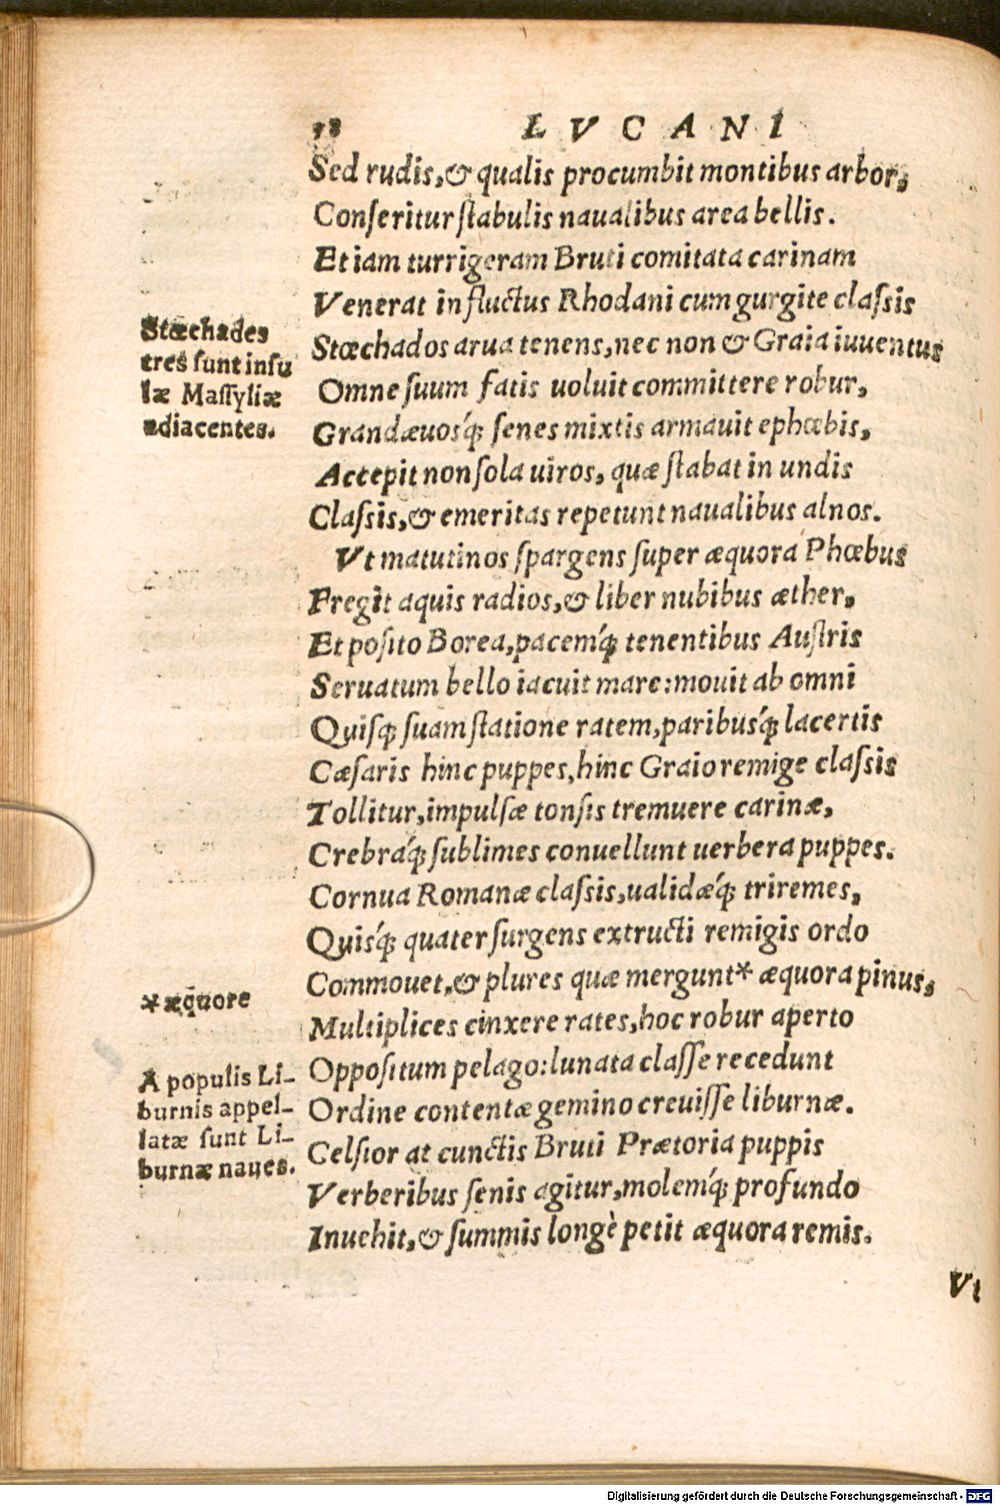 LVCANI
Sed rudis, & qualis procumbit montibus arbor,
Conſeritur ſtabulis naualibus area bellis.
Et iam turrigeram Bruti comitata carinam
Venerat in fluctus Rhodani cum gurgite claſsis
Stœchades
tres ſunt inſu
læ Maſſyliæ
adiacentes.
Stœchados arua tenens, nec non & Graia iuuentus
Omne ſuum fatis uoluit committere robur,
Grandæuosq́; ſenes mixtis armauit ephœbis,
Accepit non ſola uiros, quæ ſtabat in undis
Claſsis, & emeritas repetunt naualibus alnos.
Vt matutinos ſpargens ſuper æquora Phœbus
Fregit aquis radios, & liber nubibus æther,
Et poſito Borea, pacemq́; tenentibus Auſtris
Seruatum bello iacuit mare: mouit ab omni
Quiſq; ſuam ſtatione ratem, paribusq́; lacertis
Cæſaris hinc puppes, hinc Graio remige claſsis
Tollitur, impulſæ tonſis tremuere carinæ,
Crebraq́; ſublimes conuellunt uerbera puppes.
Cornua Romanæ claſsis, ualidæq́; triremes,
Quisq́; quater ſurgens extructi remigis ordo
Commouet, & plures quæ mergunt* æquora pinus,
*æquore
Multiplices cinxere rates, hoc robur aperto
Oppoſitum pelago: lunata claſſe recedunt
A populis Li-
burnis appel-
latæ ſunt Li-
burnæ naues.
Ordine contentæ gemino creuiſſe liburnæ.
Celſior at cunctis Bruti Prætoria puppis
Verberibus ſenis agitur, molemq́; profundo
Inuehit, & ſummis longè petit æquora remis.
Vt
Digitalisierung gefördert durch die Deutsche Forschungsgemeinschaft - DFG